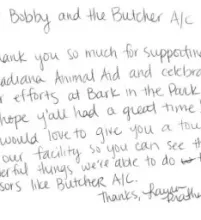 Bobby and the Butcher A/C
ank you so much for supporting
adiana Animal Aid and celebra
r efforts at Bark in the Park
hope y'all had a great time!
would love to give you a tou
our facility so you can see th
erful things we're able to do
sors like Butcher A/C.
Thanks,